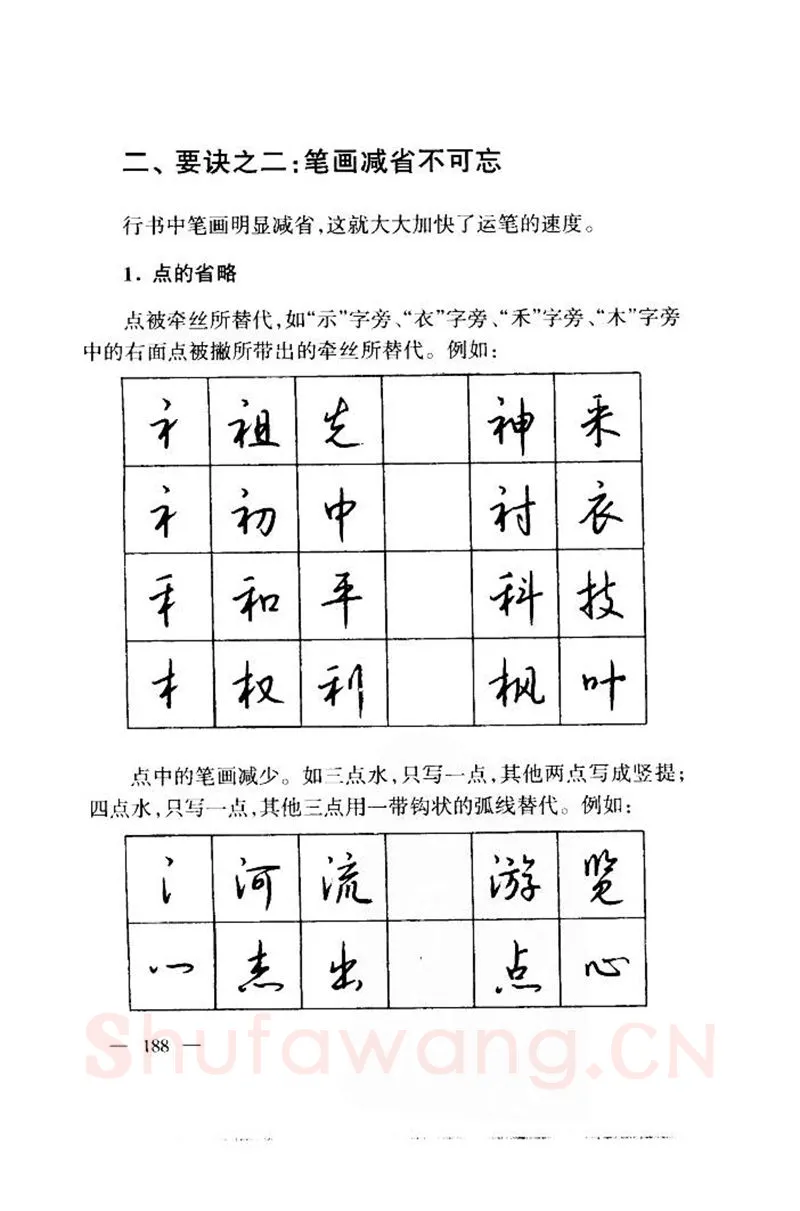 二、要诀之二:笔画减省不可忘
行书中笔画明显减省,这就大大加快了运笔的速度。
1. 点的省略
点被牵丝所替代,如“示”字旁、“衣”字旁、“禾”字旁、“木”字旁
中的右面点被撇所带出的牵丝所替代。例如:
礻 祖 先 神 采
衤 初 中 衬 衣
禾 和 平 科 技
木 权 利 枫 叶
点中的笔画减少。如三点水,只写一点,其他两点写成竖提;
四点水,只写一点,其他三点用一带钩状的弧线替代。例如:
氵 河 流 游 览
灬 杰 出 点 心
— 188 —
Shufawang.CN